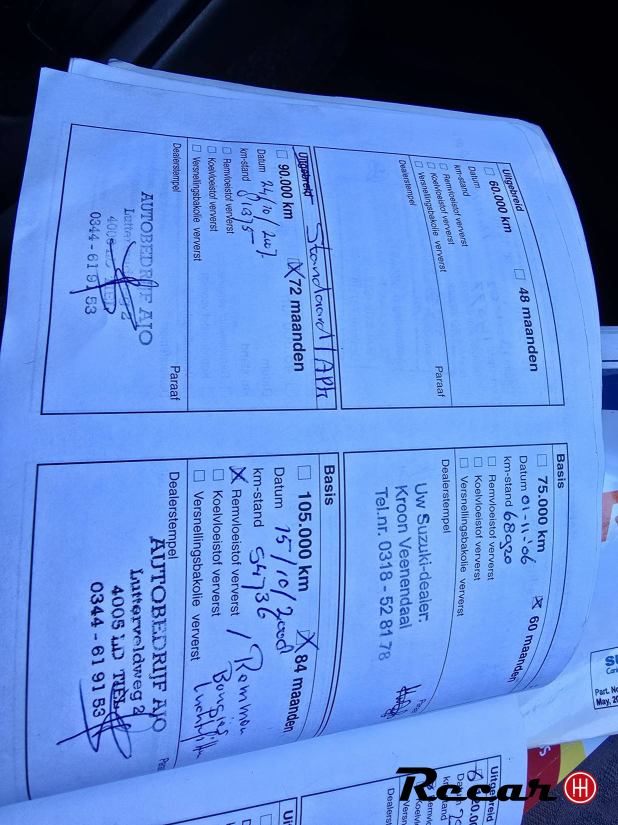 Uitgebreid
60.000 km
48 maanden
Datum
km-stand
Remvloeistof ververst
Koelvloeistof ververst
Versnellingsbakolie ververst
Dealerstempel
Paraaf
Uitgebreid Standaard / APK
90.000 km
X 72 maanden
Datum
km-stand 81375
Remvloeistof ververst
Koelvloeistof ververst
Versnellingsbakolie ververst
Dealerstempel
Paraaf
AUTOBEDRIJF AJO
0344-619153
Basis
75.000 km
X 60 maanden
Datum 01-11-'06
km-stand 68920
Remvloeistof ververst
Koelvloeistof ververst
Versnellingsbakolie ververst
Dealerstempel
Uw Suzuki-dealer.
Kroon Veenendaal
Tel.nr. 0318 - 52 81 78
Basis
105.000 km
X 84 maanden
Datum 15/10/2008
km-stand
X Remvloeistof ververst / Remmen
Koelvloeistof ververst Bougies
Versnellingsbakolie ververst Luchtfilter
Dealerstempel
AUTOBEDRIJF AJO
Lutterveldweg 2
4005 LD TIEL
0344-619153
Uitgebreid
Part. No
May, 20
Rccar